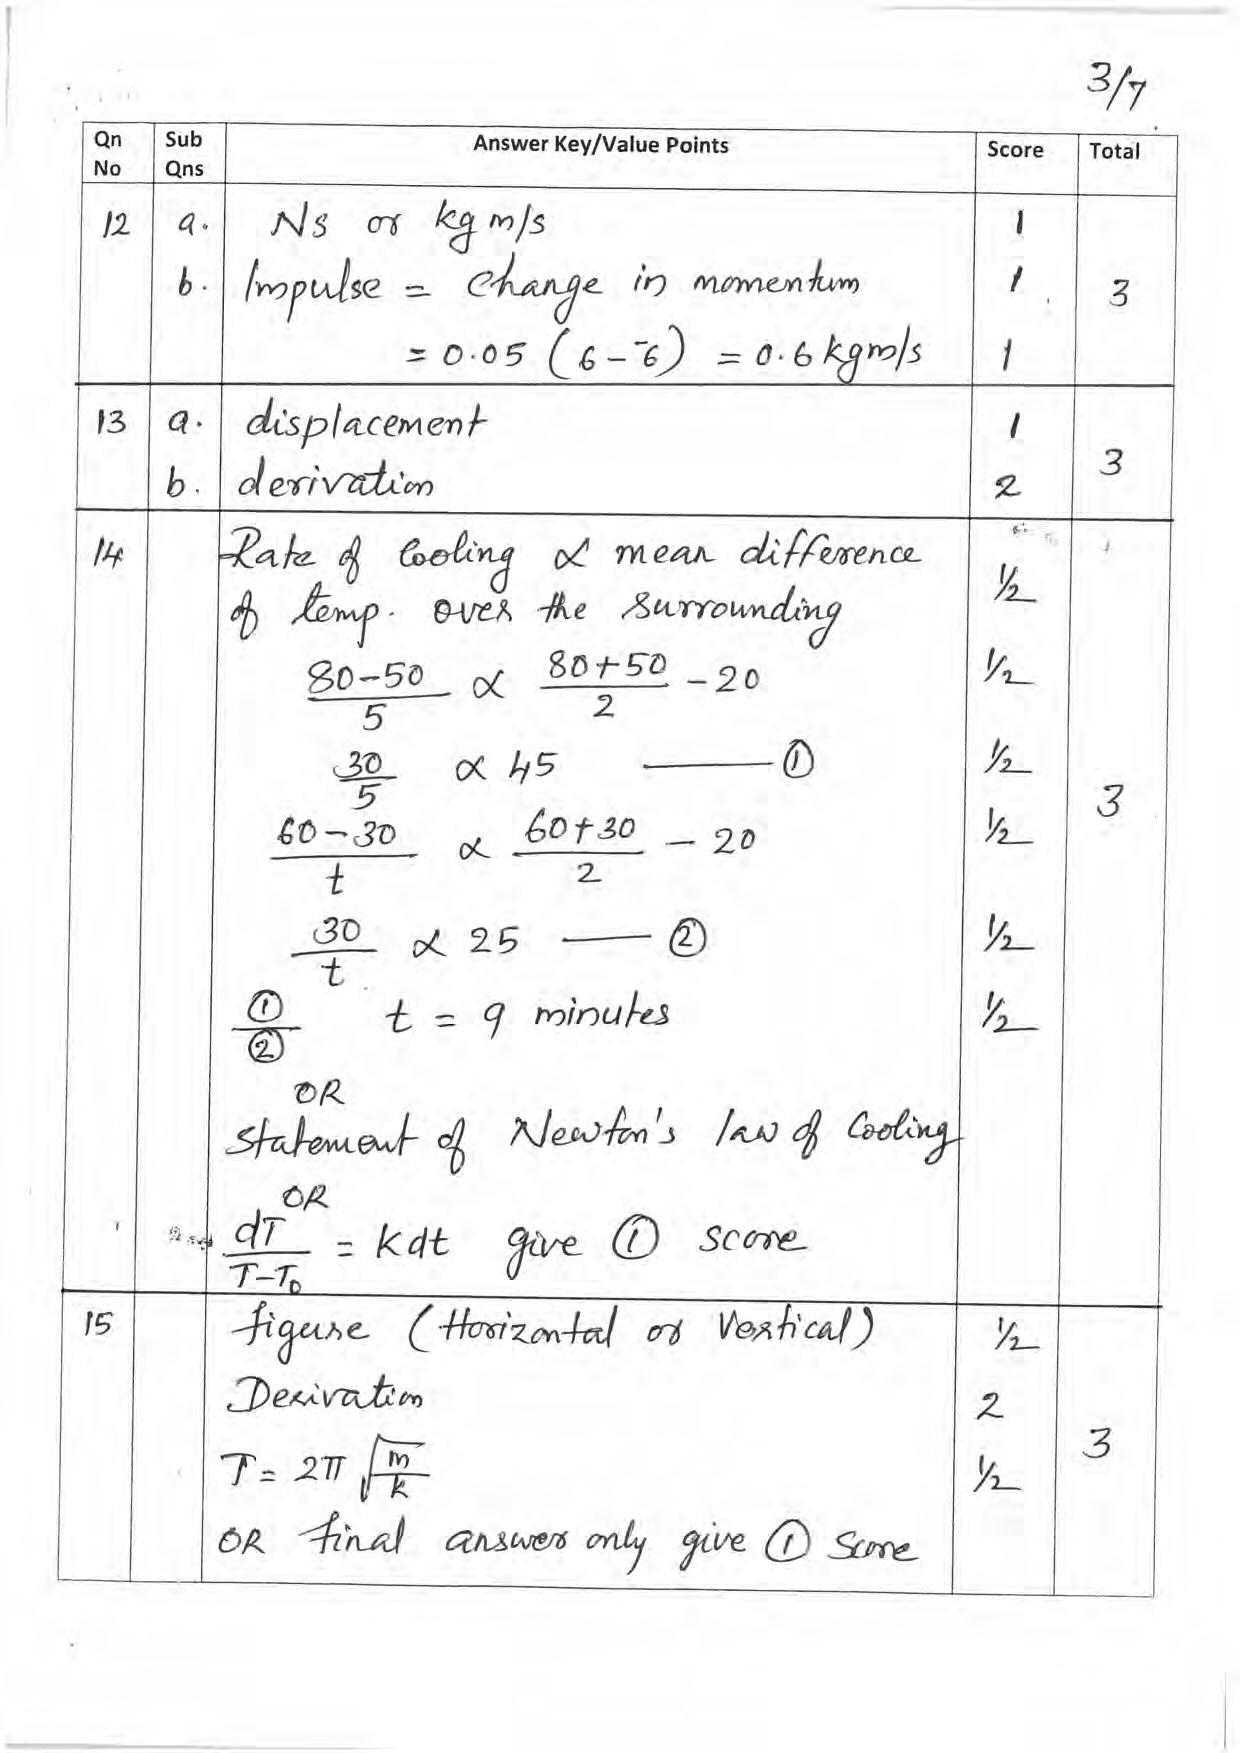 3/7
Qn No Sub Qns Answer Key/Value Points Score Total
12 a. Ns or kg m/s 1
b. Impulse = Change in momentum 1 3
= 0.05 (6 - -6) = 0.6 kgm/s 1
13 a. displacement 1 3
b. derivation 2
14 Rate of Cooling ∝ mean difference
of temp. over the surrounding 1/2
80-50/5 ∝ 80+50/2 - 20 1/2
30/5 ∝ 45 —— ① 1/2
3
60-30/t ∝ 60+30/2 - 20 1/2
30/t ∝ 25 —— ② 1/2
①/② t = 9 minutes 1/2
OR
Statement of Newton's law of Cooling
OR
dT/T-T₀ = kdt give ① score
15 figure (Horizontal or Vertical) 1/2
Derivation 2
3
T = 2π √m/k 1/2
OR final answer only give ① Score